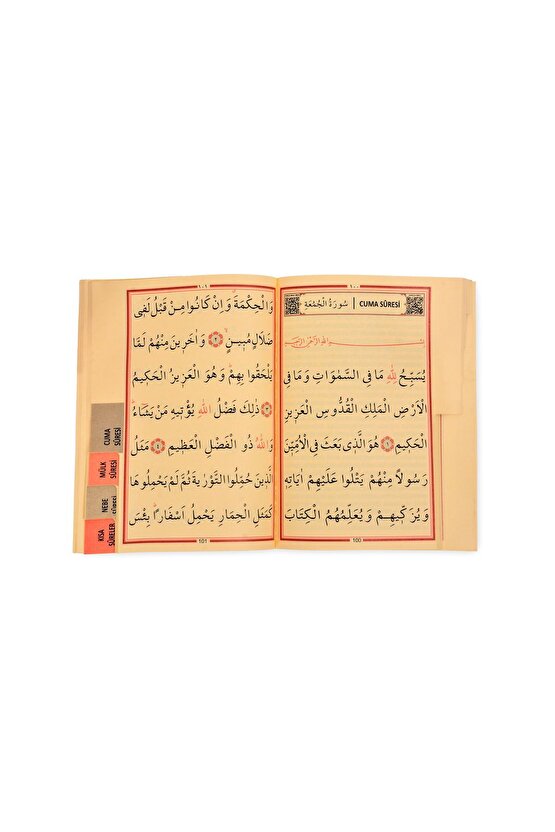 ١٠٠
سُورَةُ الْجُمُعَةِ | CUMA SÛRESİ
بِسْمِ اللهِ الرَّحْمٰنِ الرَّحِيمِ
يُسَبِّحُ لِلّٰهِ مَا فِي السَّمٰوَاتِ وَمَا فِي
الْاَرْضِ الْمَلِكِ الْقُدُّوسِ الْعَزِيزِ
الْحَكِيمِ ١ هُوَ الَّذِي بَعَثَ فِي الْاُمِّيِّنَ
رَسُولًا مِنْهُمْ يَتْلُوا عَلَيْهِمْ اٰيَاتِهِ
وَيُزَكِّيهِمْ وَيُعَلِّمُهُمُ الْكِتَابَ
100
١٠١
وَالْحِكْمَةَ وَاِنْ كَانُوا مِنْ قَبْلُ لَفِي
ضَلَالٍ مُبِينٍ ٢ وَاٰخَرِينَ مِنْهُمْ لَمَّا
يَلْحَقُوا بِهِمْ وَهُوَ الْعَزِيزُ الْحَكِيمُ
٣ ذٰلِكَ فَضْلُ اللهِ يُؤْتِيهِ مَنْ يَشَاءُ
وَاللهُ ذُو الْفَضْلِ الْعَظِيمِ ٤ مَثَلُ
الَّذِينَ حُمِّلُوا التَّوْرٰيةَ ثُمَّ لَمْ يَحْمِلُوهَا
كَمَثَلِ الْحِمَارِ يَحْمِلُ اَسْفَارًا بِئْسَ
101
CUMA
SÛRESİ
MÜLK
SÛRESİ
NEBE
KISA
SÛRELER